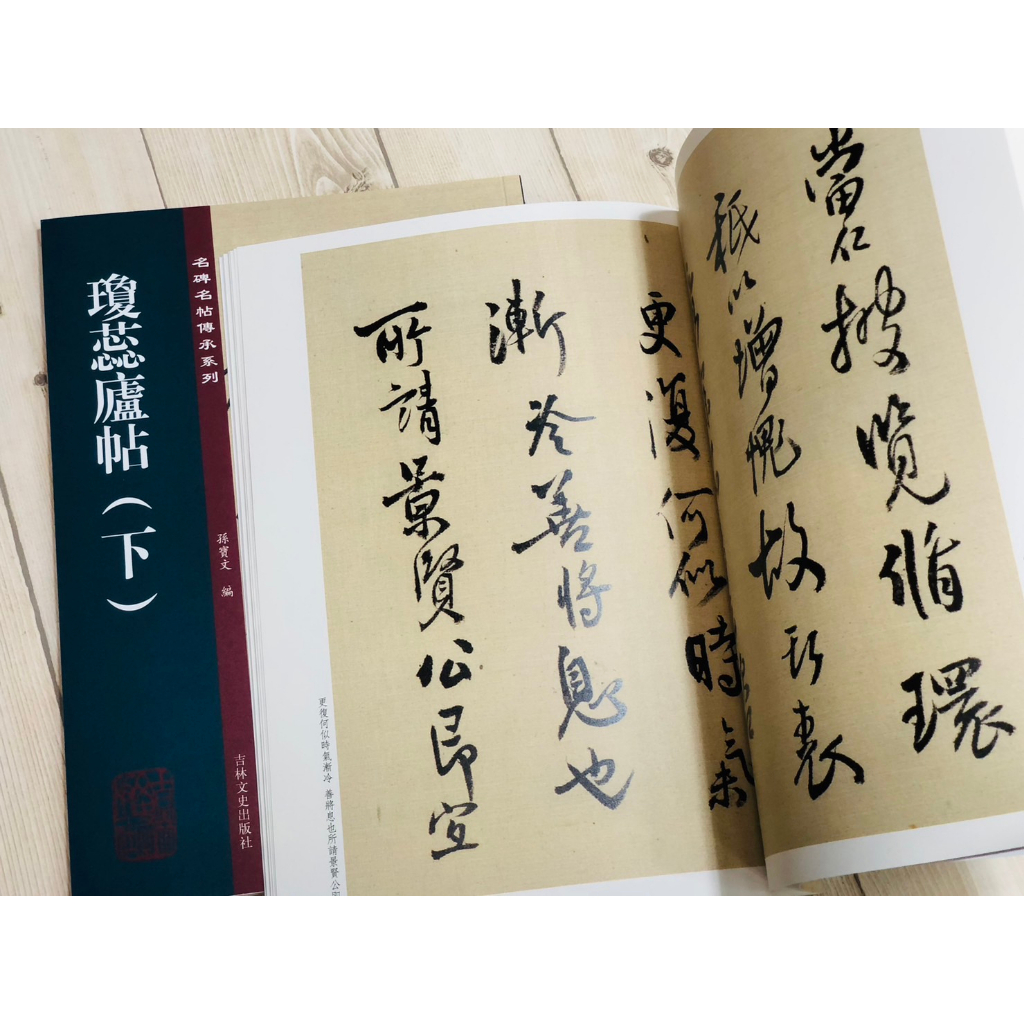 瓊蕊廬帖(下)
名碑名帖傳承系列
孫寶文 編
吉林文史出版社
當仁披覽循環
祇以增愧故所裹
更復何似時氣
漸冷善將息也
所請景賢公即宜
更復何似時氣漸冷 善將息也所請景賢公